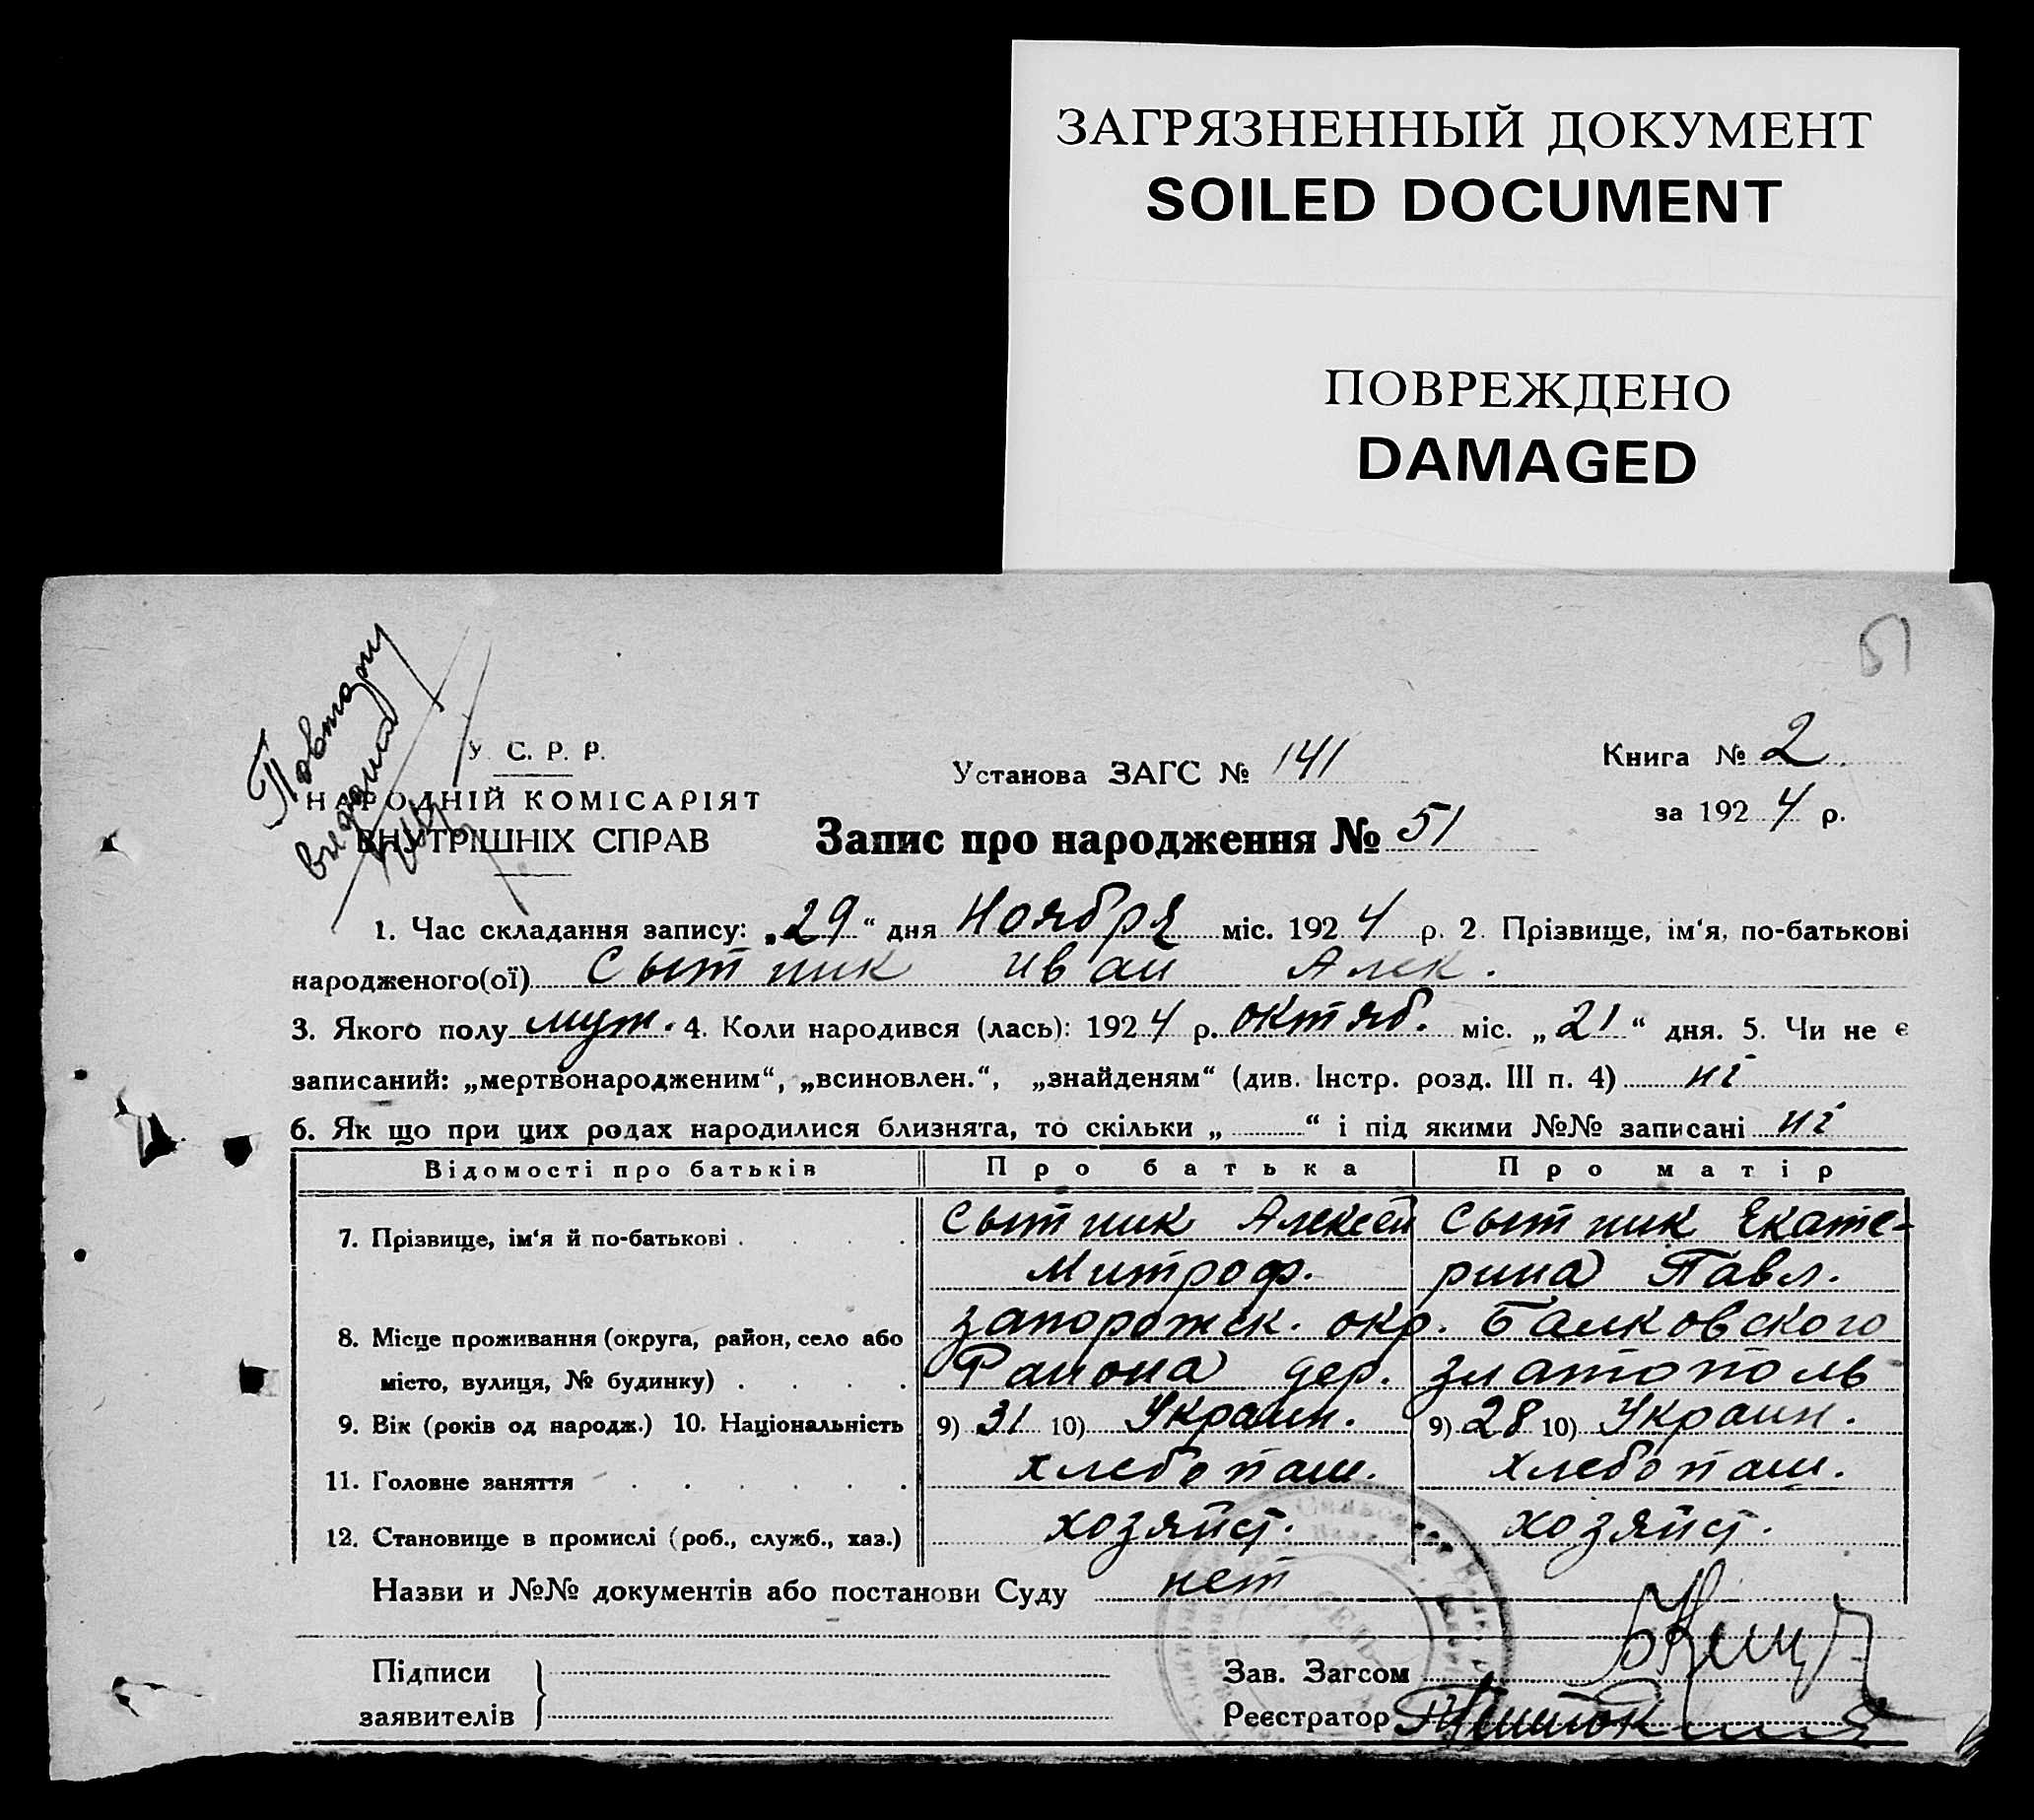 ЗАГРЯЗНЕННЫЙ ДОКУМЕНТ
SOILED DOCUMENT
ПОВРЕЖДЕНО
DAMAGED
51
Повторну
видано
У. С. Р. Р.
НАРОДНІЙ КОМІСАРІЯТ
ВНУТРІШНІХ СПРАВ
Установа ЗАГС № 141
Книга № 2
за 1924 р.
Запис про народження № 51
1. Час складання запису: „29“ дня Ноября міс. 1924 р. 2. Прізвище, ім‘я, по-батькові
народженого(ої) Сытник Иван Алек.
3. Якого полу муж. 4. Коли народився (лась): 1924 р. октяб. міс. „21“ дня. 5. Чи не є
записаний: „мертвонародженим“, „всиновлен.“, „знайденям“ (див. Інстр. розд. III п. 4) ні
6. Як що при цих родах народилися близнята, то скільки „ “ і під якими №№ записані ні
Відомості про батьків Про батька Про матір
7. Прізвище, ім‘я й по-батькові . . . . Сытник Алексей Сытник Екате-
Митроф. рина Павл.
8. Місце проживання (округа, район, село або Запорожск. окр. Балковского
місто, вулиця, № будинку) . . . . Района дер. Златополь
9. Вік (років од народж.) 10. Національність 9) 31 10) Украин. 9) 28 10) Украин.
11. Головне заняття . . . . . . хлебопаш. хлебопаш.
12. Становище в промислі (роб., служб., хаз.) хозяйст. хозяйст.
Назви и №№ документів або постанови Суду нет
Підписи
заявителів
Зав. Загсом
Реєстратор